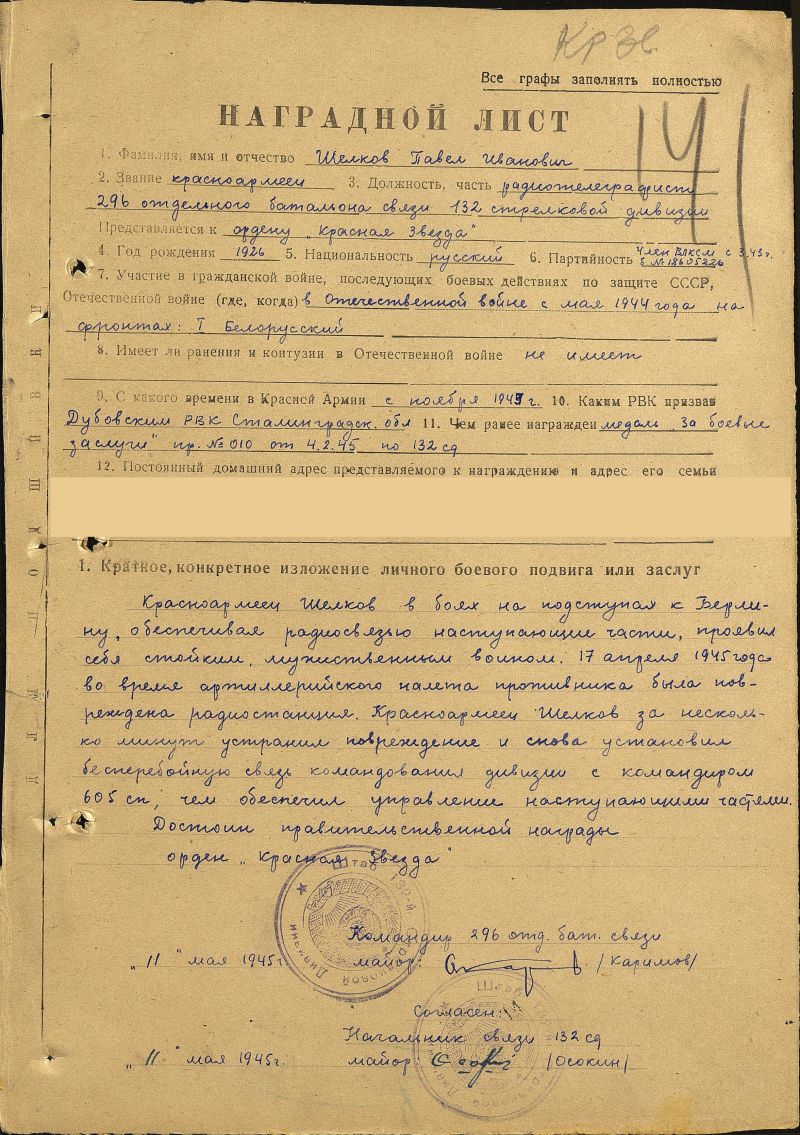 Кр Зв.
Все графы заполнять полностью
НАГРАДНОЙ ЛИСТ
141
1. Фамилия, имя и отчество Шелков Павел Иванович
2. Звание красноармеец 3. Должность, часть радиотелеграфист
296 отдельного батальона связи 132 стрелковой дивизии
Представляется к ордену „Красная Звезда"
4. Год рождения 1926 5. Национальность русский 6. Партийность Член ВЛКСМ с 3.43г.
б №18605226
7. Участие в гражданской войне, последующих боевых действиях по защите СССР,
Отечественной войне (где, когда) в Отечественной войне с мая 1944 года на
фронтах: I Белорусский
8. Имеет ли ранения и контузии в Отечественной войне не имеет
9. С какого времени в Красной Армии с ноября 1943 г. 10. Каким РВК призван
Дубовским РВК Сталинградск. обл 11. Чем ранее награжден медаль „За боевые
заслуги" пр. №010 от 4.2.45 по 132 сд
12. Постоянный домашний адрес представляемого к награждению и адрес его семьи
ДЛЯ ПОДШИВКИ
1. Краткое, конкретное изложение личного боевого подвига или заслуг
Красноармеец Шелков в боях на подступах к Берли-
ну, обеспечивая радиосвязью наступающие части, проявил
себя стойким, мужественным воином. 17 апреля 1945 года
во время артиллерийского налета противника была пов-
реждена радиостанция. Красноармеец Шелков за несколь-
ко минут устранил повреждение и снова установил
бесперебойную связь командования дивизии с командиром
605 сп, чем обеспечил управление наступающими частями.
Достоин правительственной награды
орден „Красная Звезда"
Штаб 130-й Стрелковой Дивизии
Командир 296 отд. бат. связи
„11" мая 1945г. майор: /Каримов/
Согласен:
Начальник связи 132 сд
„11" мая 1945г. майор: /Осокин/
Штаб Стрелковой Дивизии